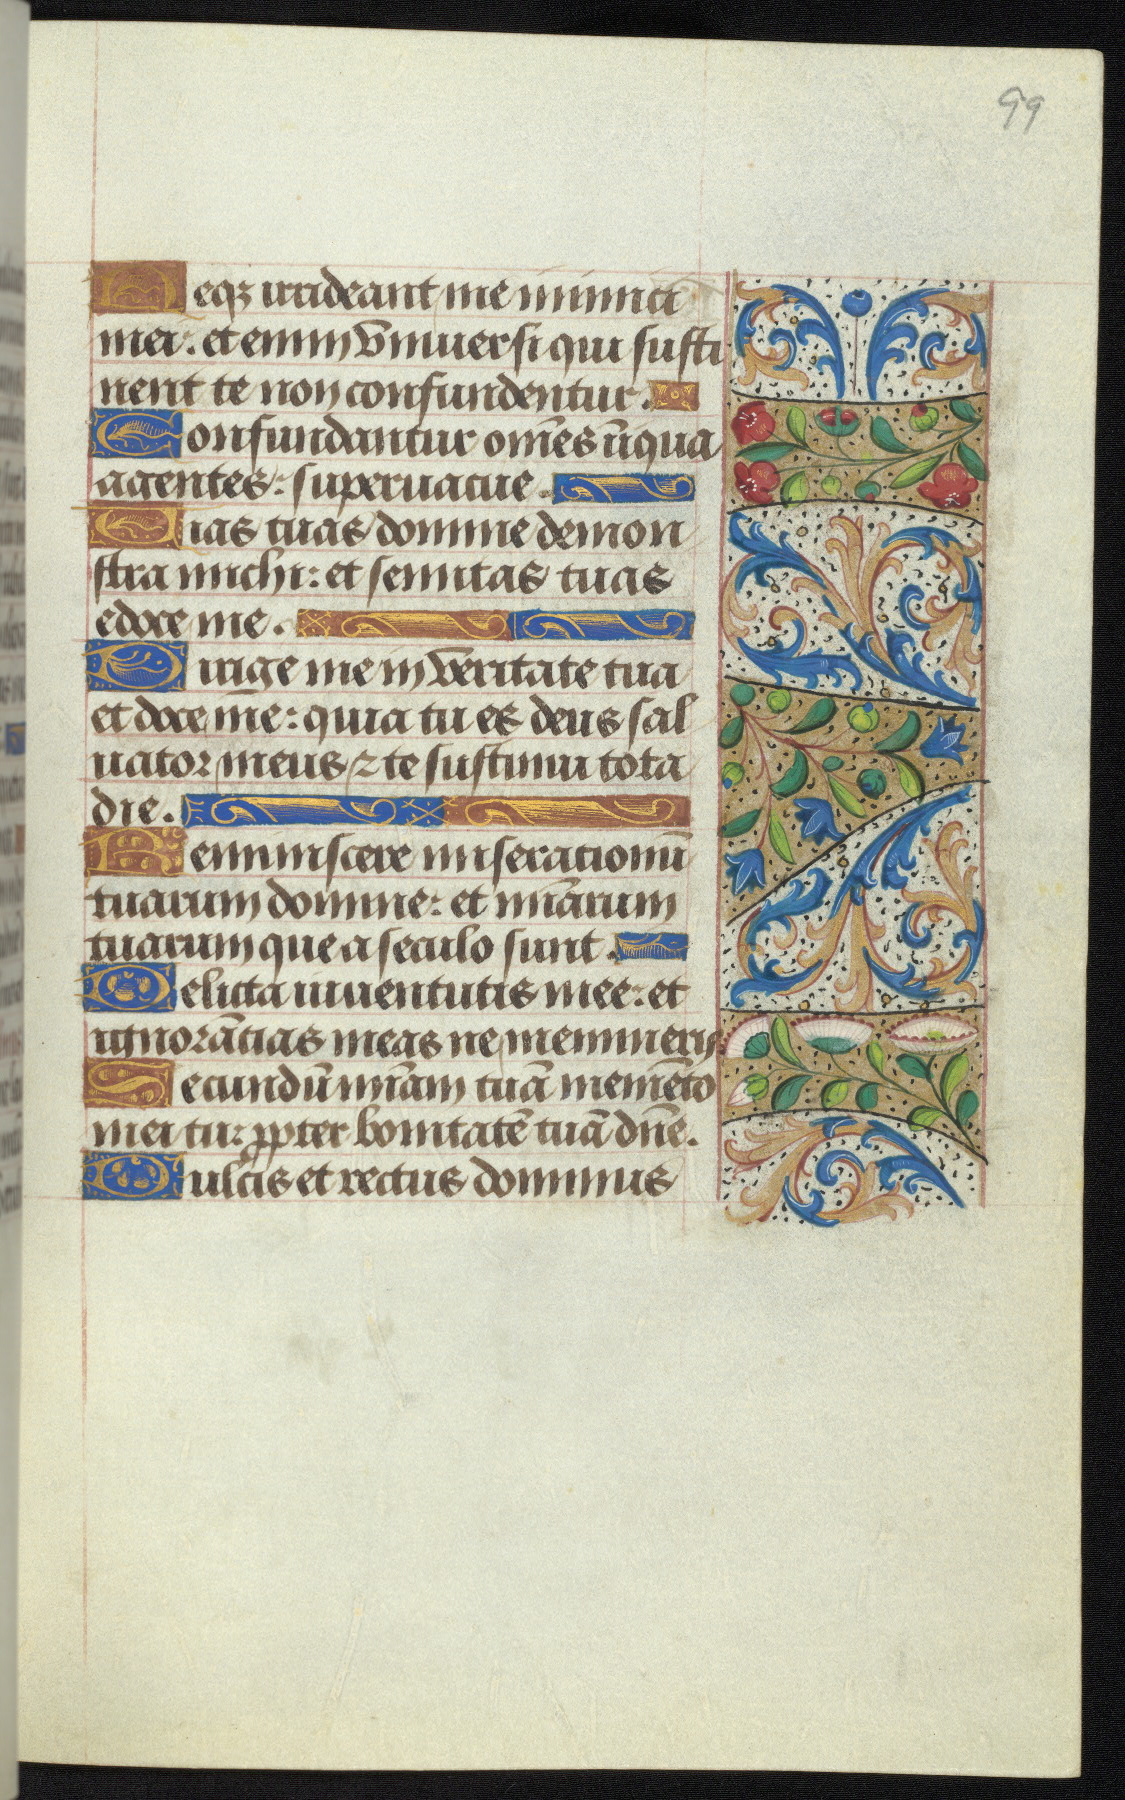 99
Neqȝ irrideant me inimici
mei: et enim vniuersi qui susti
nent te non confundentur.
Confundantur om̄es iiqua
agentes: superuacue.
Uias tuas domine demon
stra michi: et semitas tuas
edoce me.
Dirige me in veritate tua
et doce me: quia tu es deus sal
uator meus ⁊ te sustinui tota
die.
Reminiscere miserationū
tuarum domine: et mīarum
tuarum que a seculo sunt.
Delicta iuuentutis mee: et
ignorātias meas ne memineris.
Secundū mīam tuā memēto
mei tu: ꝓpter bonitatē tuā dn̄e.
Dulcis et rectus dominus